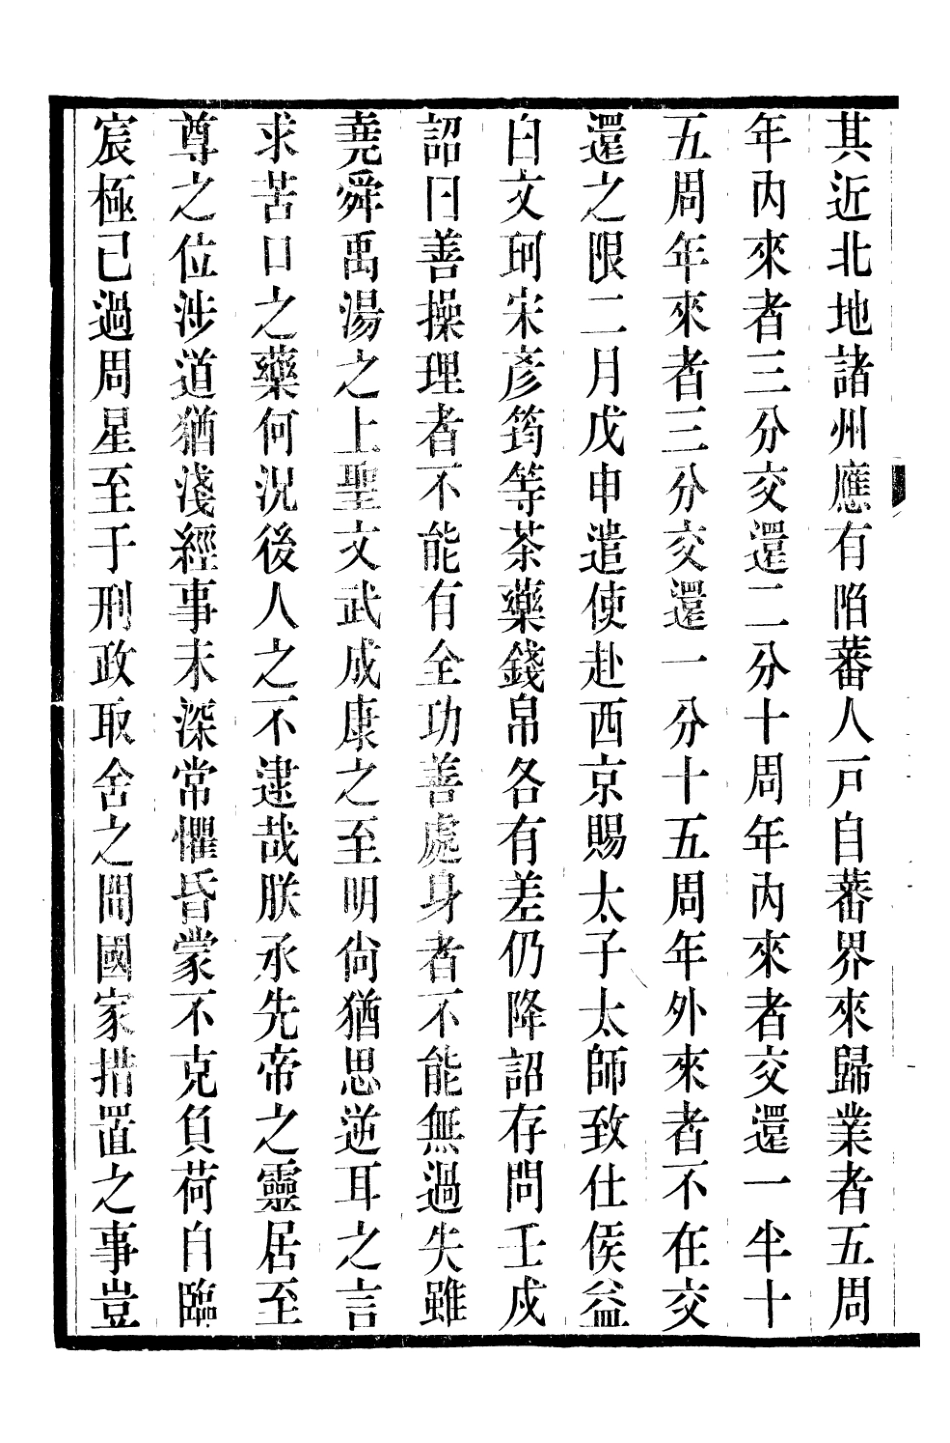 其近北地諸州應有陷蕃人戸自蕃界來歸業者五周
年內來者三分交還二分十周年內來者交還一半十
五周年來者三分交還一分十五周年外來者不在交
還之限二月戊申遣使赴西京賜太子太師致仕侯益
白文珂宋彥筠等茶藥錢帛各有差仍降詔存問壬戌
詔曰善操理者不能有全功善處身者不能無過失雖
堯舜禹湯之上聖文武成康之至明尙猶思逆耳之言
求苦口之藥何況後人之不逮哉朕承先帝之靈居至
尊之位涉道猶淺經事未深常懼昏蒙不克負荷自臨
宸極已過周星至于刑政取舍之間國家措置之事豈